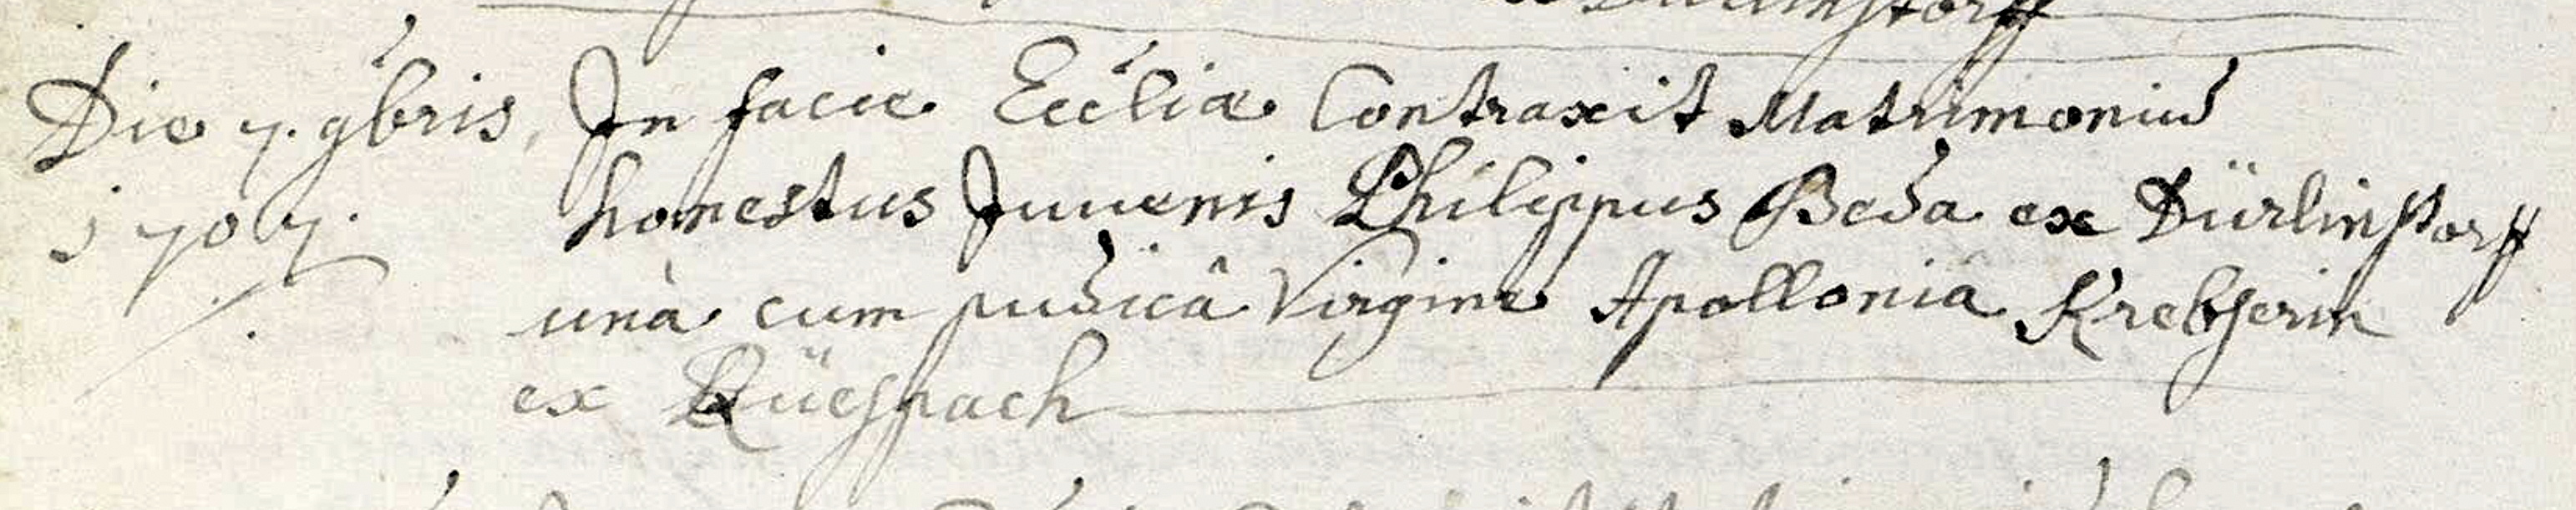 Dürlinstorff
Die 7. 9bris, In facie Eccliæ Contraxit Matrimoniu
1707. honestus Juvenis Philippus Beda ex Dürlinstorff
unà cum pudicâ Virgine Apollonia Krebserin
ex Rüespach